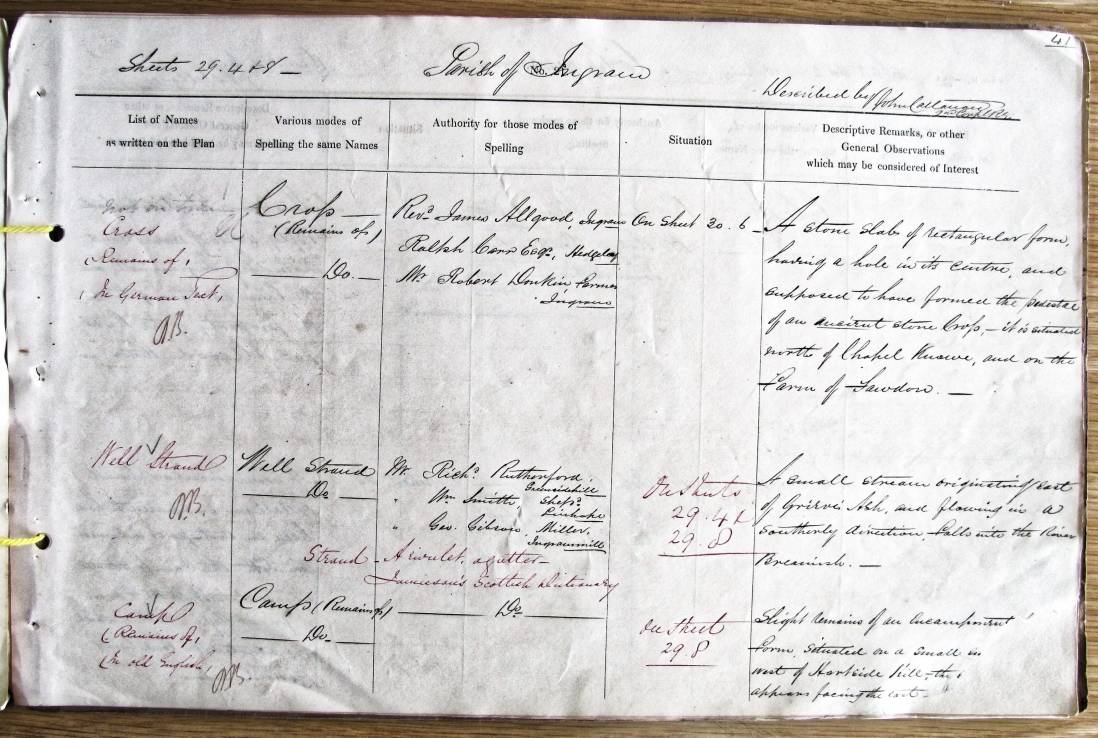 41
Sheets 29.4 & 8 —
Parish of Ingram
Described by John Callanan
List of Names
as written on the Plan
Various modes of
Spelling the same Names
Authority for those modes of
Spelling
Situation
Descriptive Remarks, or other
General Observations
which may be considered of Interest
Cross
(Remains of)
In German Text,
Cross
(Remains of)
Do.
Revd. James Allgood, Ingram
Ralph Carr Esqr., Hedgeley
Mr. Robert Donkin, Farmer
Ingram
On Sheet 20. 6
A stone slab of rectangular form,
having a hole in its centre, and
supposed to have formed the pedestal
of an ancient stone Cross, — it is situated
north of Chapel Knowe, and on the
Farm of Fawdon. —
Well Strand
Well Strand
Do
Mr. Richd. Rutherford,
Greensidehill
" Wm Smith, Shepd.
Linhope
" Geo. Gibson, Miller,
Ingrammill
Strand - A rivulet, a gutter —
Jamieson's Scottish Dictionary
On Sheets
29.4 &
29.8
A small stream originating east
of Ash, and flowing in a
Southerly direction falls into the River
Breamish. —
Camp
(Remains of)
In old English,
Camp (Remains of)
Do.
Do
On Sheet
29 8
Slight remains of an encampment
form, situated on a small
west of Hartside hill, the
appears facing the east